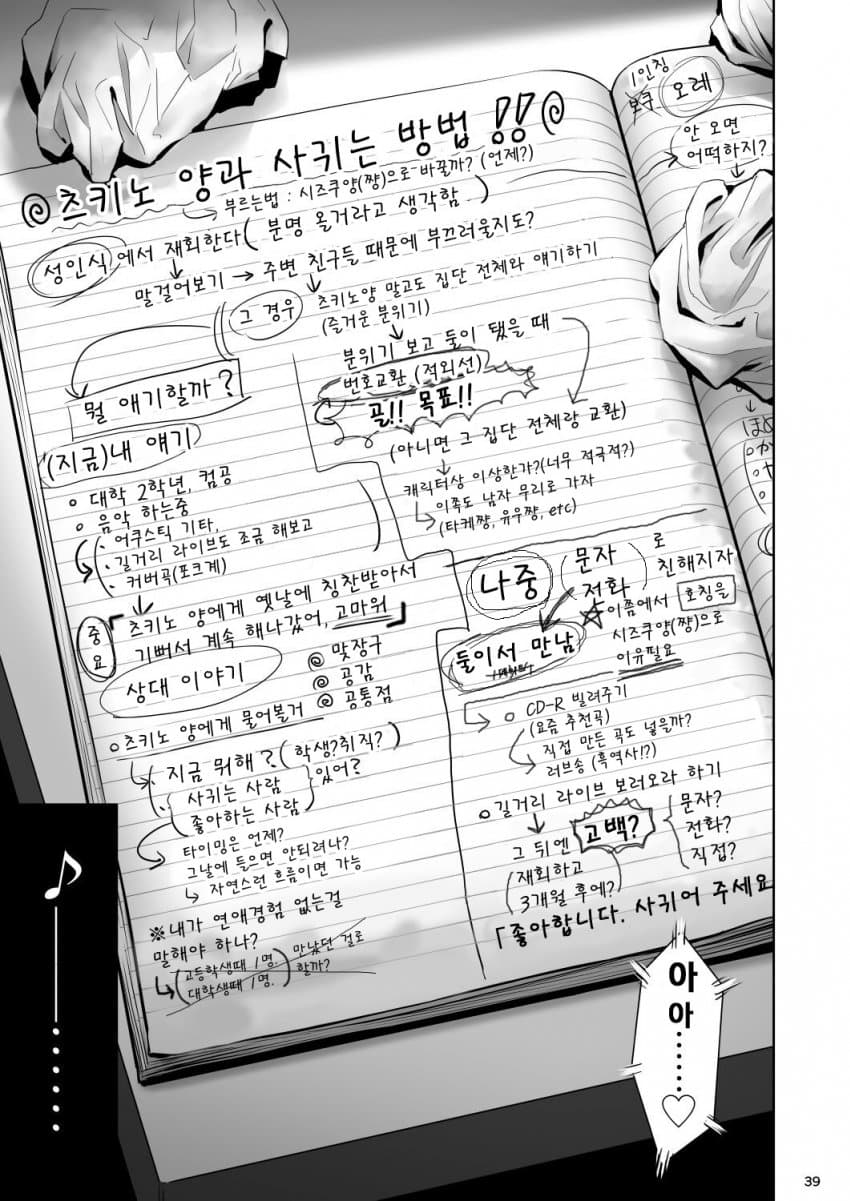 츠키노 양과 사귀는 방법!!
부르는법 : 시즈쿠양(쨩)으로 바꿀까? (언제?)
성인식에서 재회한다 (분명 올거라고 생각함)
말걸어보기 → 주변 친구들 때문에 부끄러울지도?
그 경우
츠키노양 말고도 집단 전체와 얘기하기
(즐거운 분위기)
분위기 보고 둘이 됐을 때
번호교환 (적외선)
골!! 목표!!
(아니면 그 집단 전체랑 교환)
캐릭터상 이상한가?(너무 적극적?)
이쪽도 남자 무리로 가자
(타케쨩, 유우쨩, etc)
뭘 얘기할까?
(지금)내 얘기
대학 2학년, 컴공
음악 하는중
어쿠스틱 기타,
길거리 라이브도 조금 해보고
커버곡(포크계)
중요
「츠키노 양에게 옛날에 칭찬받아서
기뻐서 계속 해나갔어, 고마워」
상대 이야기
맞장구
공감
공통점
츠키노 양에게 물어볼거
지금 뭐해? (학생?취직?)
사귀는 사람
좋아하는 사람
있어?
타이밍은 언제?
그날에 들으면 안되려나?
자연스런 흐름이면 가능
※내가 연애경험 없는걸
말해야 하나?
(고등학생때 1명.
대학생때 1명.)
만났던 걸로
할까?
나중
문자
전화
로
친해지자
☆이쯤에서 호칭을
시즈쿠양(쨩)으로
이유필요
둘이서 만남
CD-R 빌려주기
(요즘 추천곡)
직접 만든 곡도 넣을까?
러브송 (흑역사!?)
길거리 라이브 보러오라 하기
그 뒤엔 고백?
(재회하고
3개월 후에?)
문자?
전화?
직접?
「좋아합니다. 사귀어 주세요
1인칭
보쿠 오레
안 오면
어떡하지?
♪――……
아아……♡
39